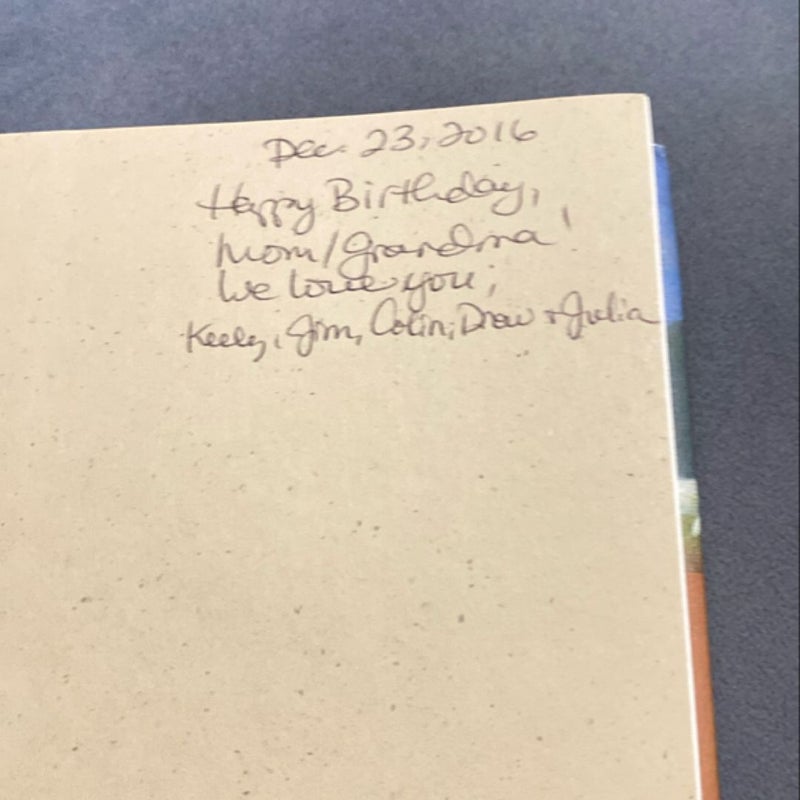 Dec. 23, 2016
Happy Birthday,
Mom/Grandma!
We love you,
Keely, Jim, Colin, Drew + Julia